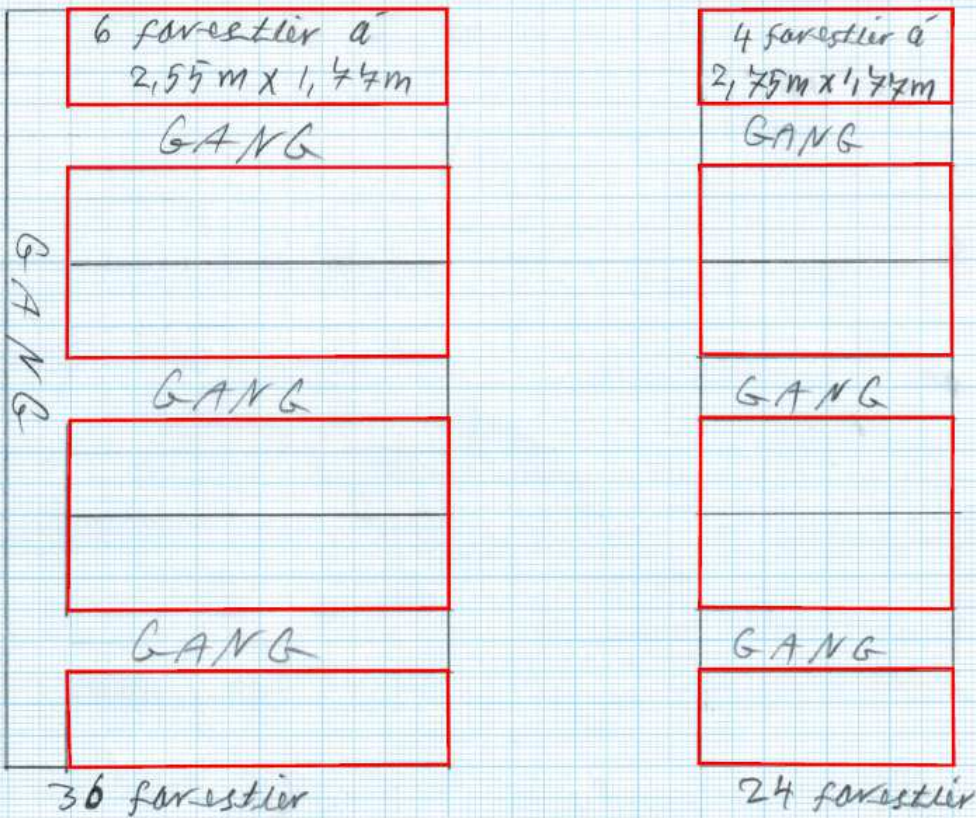 6 farestier á
2,55 m x 1,77m
GANG
GANG
GANG
GANG
36 farestier
4 farestier á
2,75m x 1,77m
GANG
GANG
GANG
24 farestier